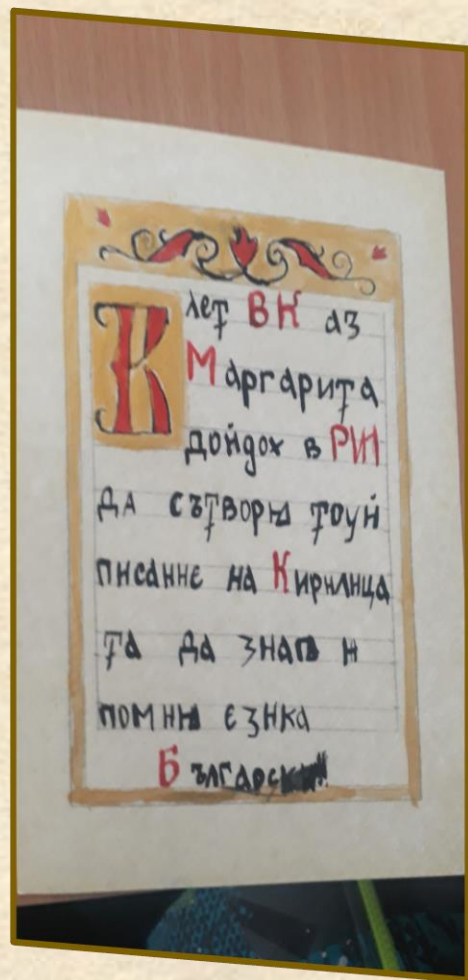 К лет ВК аз
Маргарита
дойдох в РИМ
да сътворѭ тоуй
писание на Кирилица
та да знаѭ и
помнѭ езика
Български